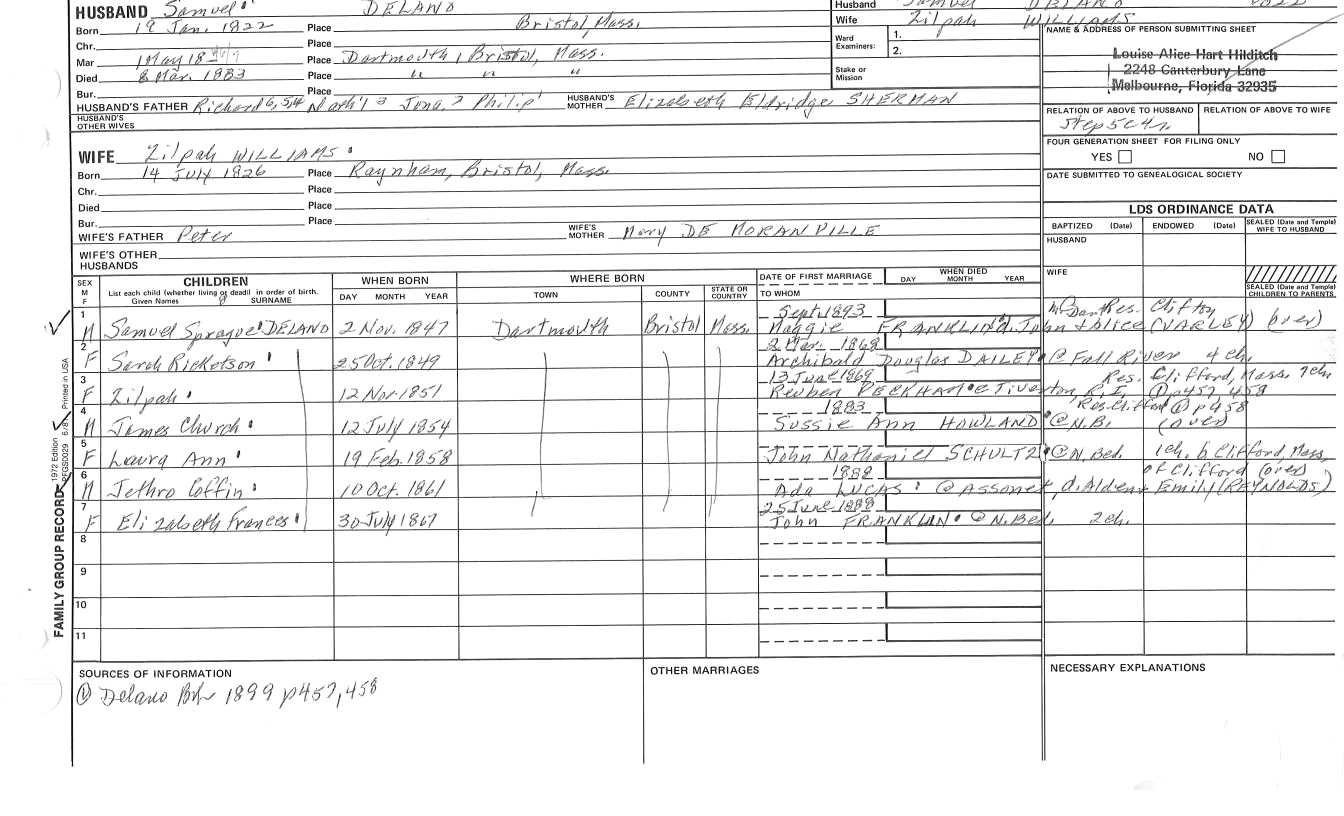 HUSBAND Samuel DELANO
Born 19 Jan. 1822 Place Bristol Mass.
Chr. Place
Mar 1 May 18 Place Dartmouth, Bristol, Mass.
Died 8 Mar. 1883 Place " " "
Bur. Place
HUSBAND'S FATHER Richard 6, 5, 4 Jona. Philip HUSBAND'S MOTHER Elizabeth Eldridge SHERMAN
HUSBAND'S OTHER WIVES
Husband Samuel DELANO
Wife Zilpah WILLIAMS
Ward Examiners: 1.
2.
Stake or Mission
NAME & ADDRESS OF PERSON SUBMITTING SHEET
Louise Alice Hart Hilditch
2248 Canterbury Lane
Melbourne, Florida 32935
RELATION OF ABOVE TO HUSBAND RELATION OF ABOVE TO WIFE
FOUR GENERATION SHEET FOR FILING ONLY
YES NO
DATE SUBMITTED TO GENEALOGICAL SOCIETY
WIFE Zilpah WILLIAMS
Born 14 July 1826 Place Raynham, Bristol, Mass.
Chr. Place
Died Place
Bur. Place
WIFE'S FATHER Peter WIFE'S MOTHER Mary DE MORANVILLE
WIFE'S OTHER HUSBANDS
LDS ORDINANCE DATA
BAPTIZED (Date) ENDOWED (Date) SEALED (Date and Temple) WIFE TO HUSBAND
HUSBAND
WIFE
SEALED (Date and Temple) CHILDREN TO PARENTS
SEX M F
CHILDREN
List each child (whether living or dead) in order of birth.
Given Names SURNAME
WHEN BORN
DAY MONTH YEAR
WHERE BORN
TOWN COUNTY STATE OR COUNTRY
DATE OF FIRST MARRIAGE
TO WHOM
WHEN DIED
DAY MONTH YEAR
1 Sept 1893 Res. Clifton
M Samuel Sprague DELANO 2 Nov. 1847 Dartmouth Bristol Mass. Maggie FRANKLIN d. John & Alice (VARLEY) (over)
2 2 Mar. 1868
F Sarah Ricketson 25 Oct. 1849 Archibald Douglas DAILEY @ Fall River 4 ch.
3 13 June 1869 Res. Clifford, Mass. 7 ch
F Zilpah 12 Nov. 1851 Reuben PECKHAM @ Tiverton, R.I. p457, 458
4 1883 Res. Clifford p458
M James Church 12 July 1854 Sussie Ann HOWLAND @ N.B. (over)
5
F Laura Ann 19 Feb. 1858 John Nathaniel SCHULTZ @ N. Bed. 1 ch. b Clifford, Mass.
6 1888 of Clifford (over)
M Jethro Coffin 10 Oct. 1861 Ada LUCAS @ Assonet, d. Alden & Emily (REYNOLDS)
7 25 June 1888
F Elizabeth Frances 30 July 1867 John FRANKLIN @ N. Bed. 2 ch.
8
9
10
11
FAMILY GROUP RECORD
1972 Edition
Printed in USA
SOURCES OF INFORMATION
Delano 1899 p457, 458
OTHER MARRIAGES
NECESSARY EXPLANATIONS